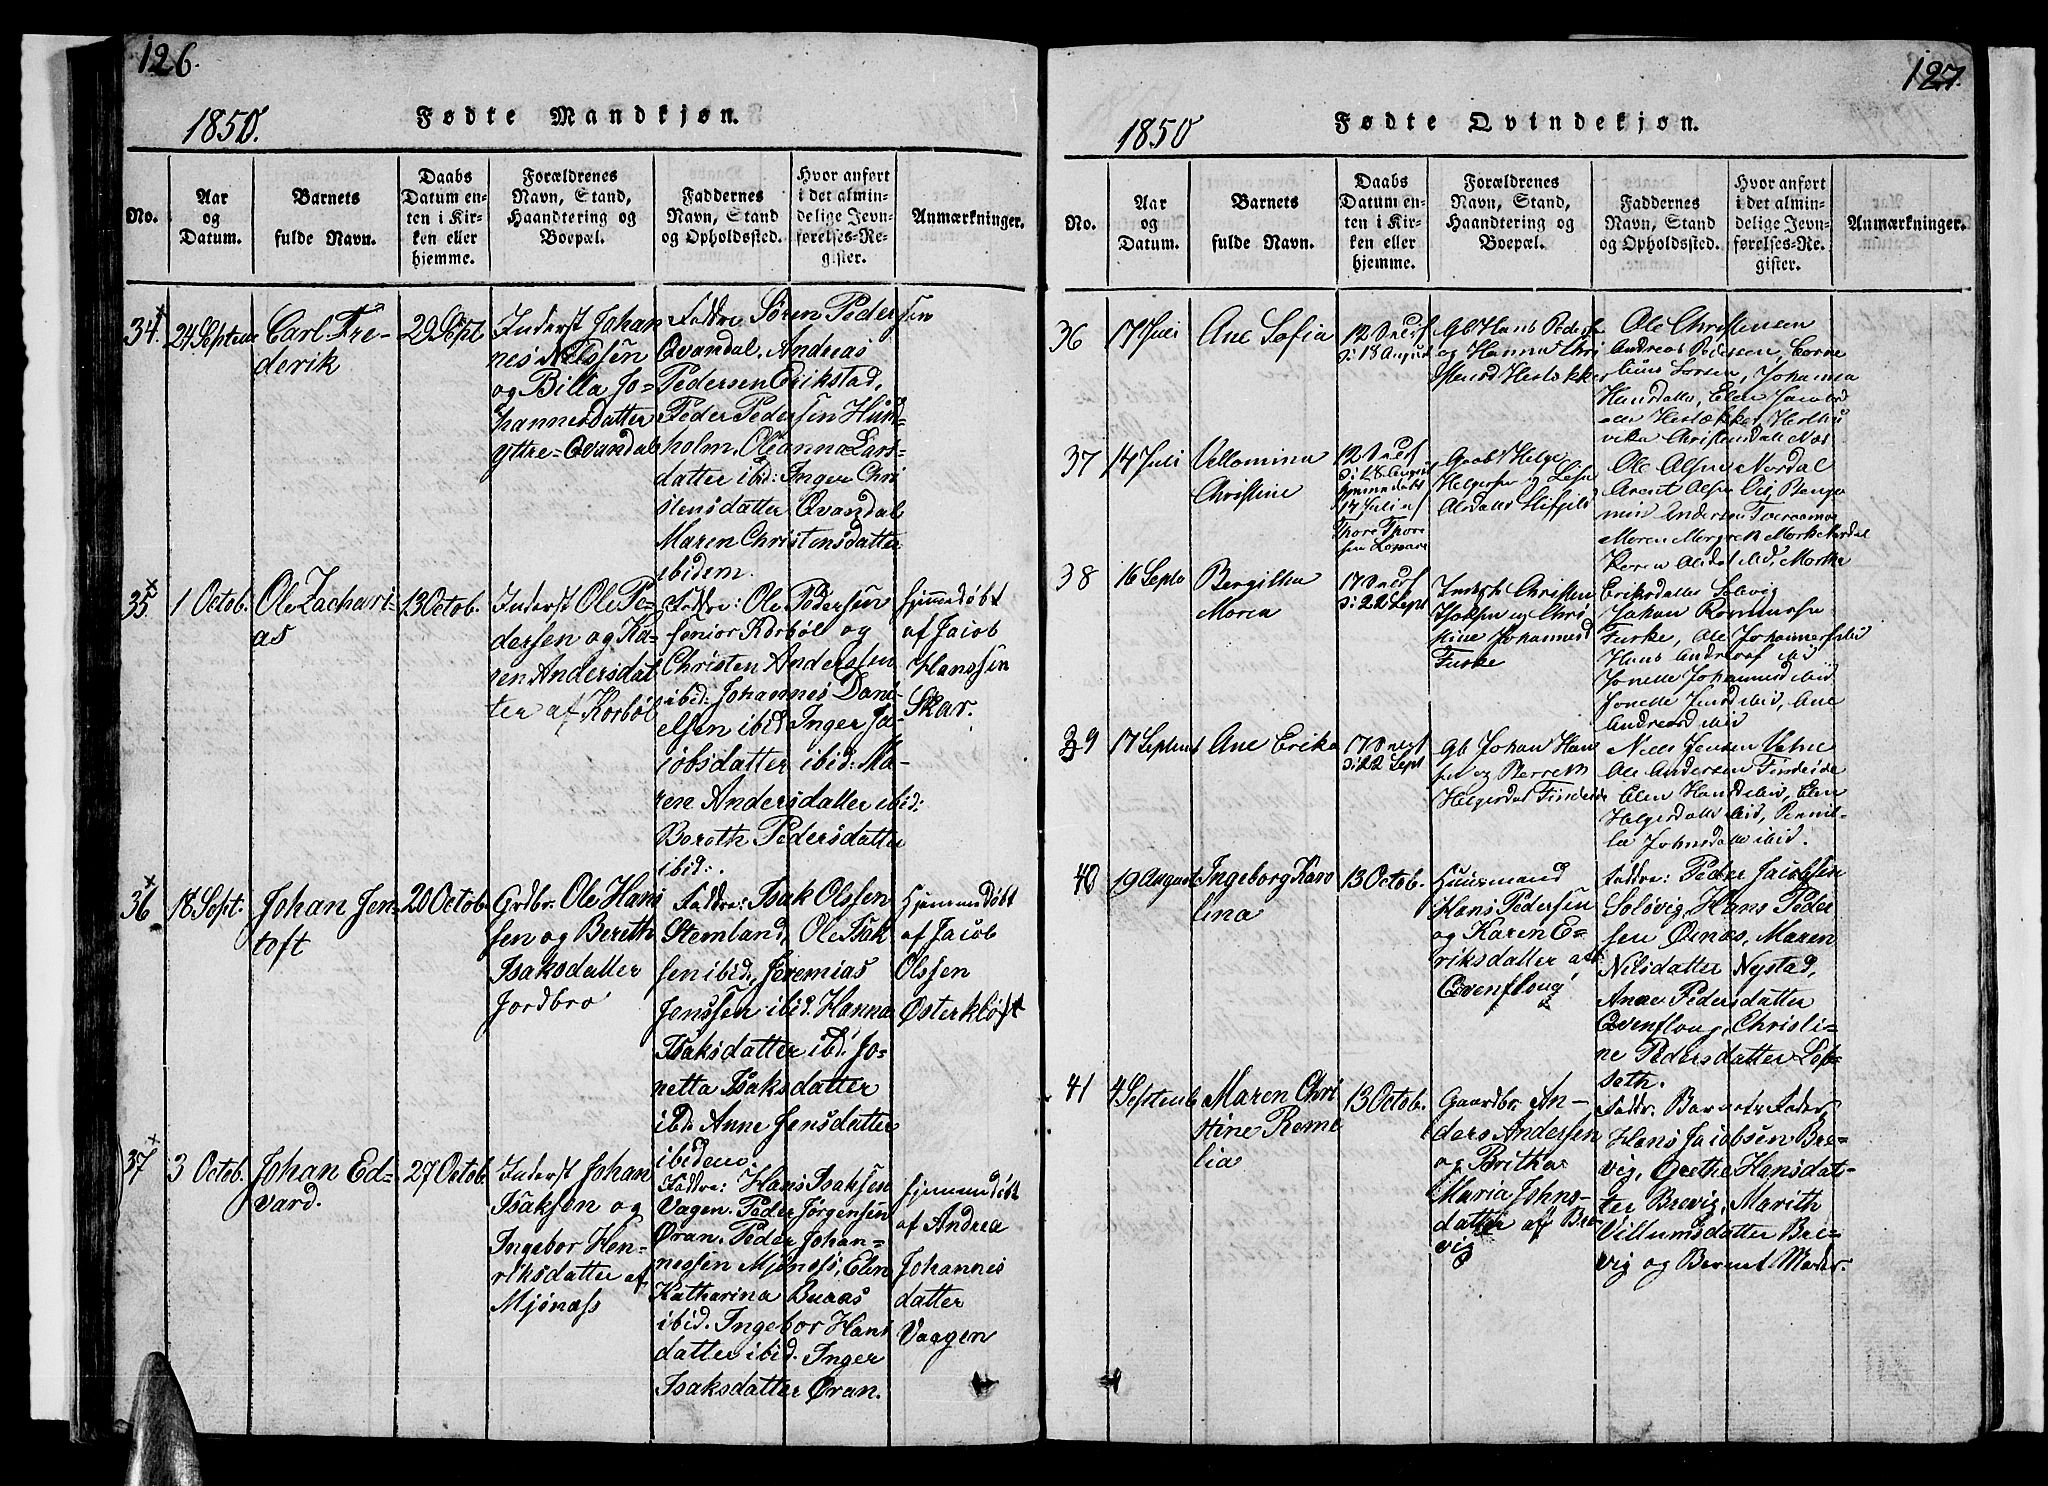 126.
1850.
Fødte Mandkjøn.
No.
Aar
og
Datum.
Barnets
fulde Navn.
Daabs
Datum en-
ten i Kir-
ken eller
hjemme.
Forældrenes
Navn, Stand,
Haandtering og
Boepæl.
Faddernes
Navn, Stand
og Opholdssted.
Hvor anført
i det almin-
delige Jevn-
førelses-Re-
gister.
Anmærkninger.
34
24 Septem
Carl Fre-
derik
29 Sept
Inderst Johan
nes Nilssen
og Billa Jo-
hannesdatter
Yttre-Qvandal
Faddre. Søren Peder sen
Qvandal. Andreas
Pedersen Erikstad,
Peder Pedersen Hund-
holm. Oleanna Lars-
datter ibid: Inger Chri
stensdatter Qvandal
Maren Christensdatter
ibidem.
35
1 Octob.
Ole Zachari-
as
13 Octob.
Inderst Ole Pe-
dersen og Ka-
ren Andersdat
ter af Korbøl
Faddre: Ole Pedersen
senior Korbøl og
Christen Anderssen
ibid: Johannes Dani-
elsen ibid Inger Ja-
cobsdatter ibid: Ma-
ren Andersdatter ibid:
Beroth Pedersdatter
ibid:.
Hjemmedøbt
af Jacob
Hanssen
Skar.
36
18 Sept.
Johan Jen-
toft
20 Octob.
Grdbr. Ole Hans
sen og Bereth
Isaksdatter
Jordbro
Faddre: Isak Olssen
Stemland, Ole Isak
sen ibid, Jeremias
Jenssen ibid. Hanna
Isaksdatter ibid: Jo-
netta Isaksdatter
ibd: Anne Jensdatter
ibidem.
Hjemmedøbt
af Jacob
Olssen
Østerkløft
37
3 Octob.
Johan Ed-
vard.
27 Octob.
Inderst Johan
Isaksen og
Ingebor Hen-
riksdatter af
Mjönæss
Faddre: Hans Isaksen
Vagen. Peder Jørgensen
Øran. Peder Johan-
nessen Mjönæss, Elen
Katharina Buaas
ibid. Ingebor Hans
datter ibid. Inger
Isaksdatter Øran.
Hjemmedöbt
af Andrea
Johannes
datter
Vaagen
127.
1850
Fødte Qvindekjøn.
No.
Aar
og
Datum.
Barnets
fulde Navn.
Daabs
Datum en-
ten i Kir-
ken eller
hjemme.
Forældrenes
Navn, Stand,
Haandtering og
Boepæl.
Faddernes
Navn, Stand
og Opholdssted.
Hvor anført
i det almin-
delige Jevn-
førelses-Re-
gister.
Anmærkninger.
36
17 Juli
Ane Sofia
Gb Hans Peders
og Hanna Chri
Ole Christensen
Andreas Pedersen, Corne
lius Larsen, Johanna
37
14 Juli
Vellomina
Christine
Gaab Helge
Ole Olsen Nordal
38
16 Septb
Bergitha
Maren
17 Onesf
Indst Christen
Furke
Eriksdatter Solvig
Furke, Ole Johannesen ibid
Andreasd ibid
39
17 Septemb
Ane Erika
17 Onesf
Gb Johan Han
sen og Berreth
Niels Jensen Valne
Ole Andersen Finneide
Elen Hansd ibid, Elen
Helgesdatt ibid, Pernil-
la Johnsdatt ibid.
40
19 August
Ingeborg Karo
lina
13 Octob.
Huusmand
Hans Pedersen
og Karen E-
riksdatter af
Evenfloug
Faddre: Peder Jacobsen
Soløvig, Hans Peder
sen Øsnæs, Maren
Nilsdatter Nystad,
Anne Pedersdatter
Evenfloug, Christi-
ne Pedersdatter Løp-
seth.
41
4 Septemb
Maren Chri
stine Rome
lia
13 Octob.
Gaardbr. An-
ders Andersen
og Britha
Maria Johns-
datter af Bre-
vig
Faddr. Barnets Fader,
Hans Jacobsen Bre-
vig, Grethe Hansdat-
ter Brevig, Marith
Villumsdatter Bre-
vig og Barnet Moder.